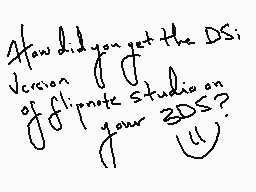 How did you get the DSi
Version
of flipnote studio on
your 3DS?